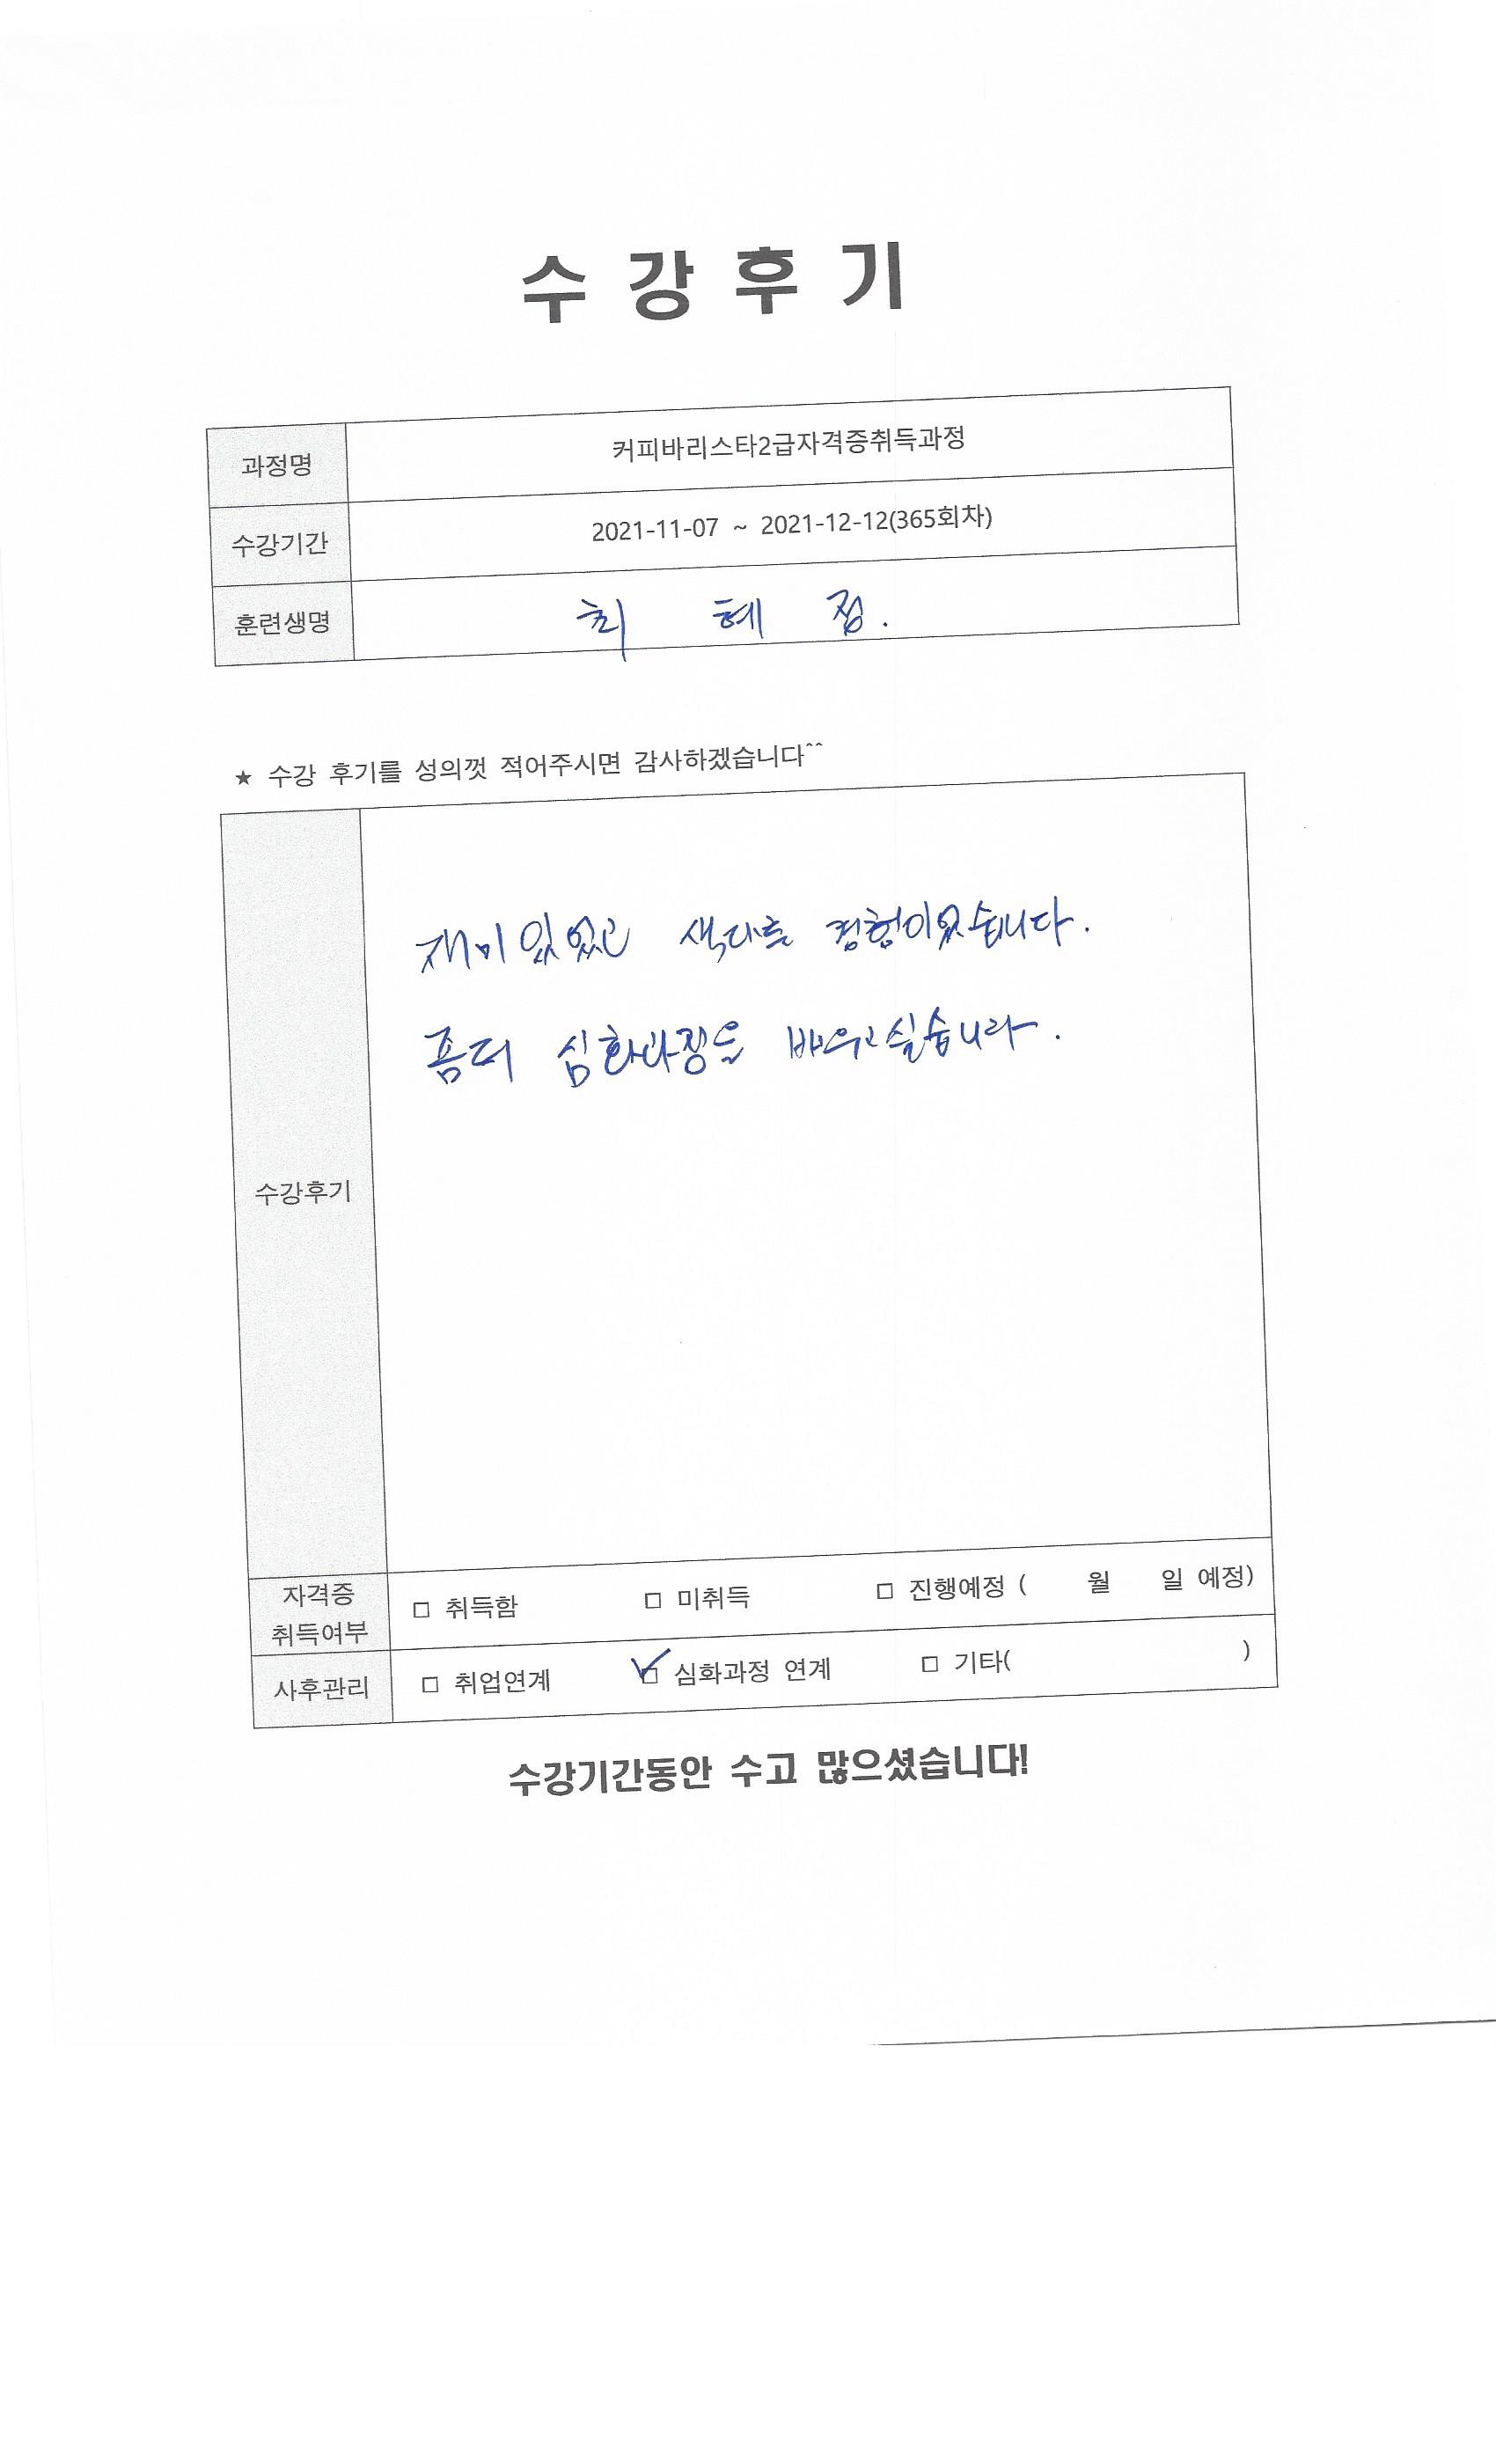 수 강 후 기
과정명 커피바리스타2급자격증취득과정
수강기간 2021-11-07 ~ 2021-12-12(365회차)
훈련생명 최 혜
★ 수강 후기를 성의껏 적어주시면 감사하겠습니다^^
재미있었고 색다른 경험이었습니다.
좀더 심화과정을 배우고싶습니다.
수강후기
자격증
취득여부
□ 취득함 □ 미취득 □ 진행예정 ( 월 일 예정)
사후관리 □ 취업연계 ☑ 심화과정 연계 □ 기타( )
수강기간동안 수고 많으셨습니다!